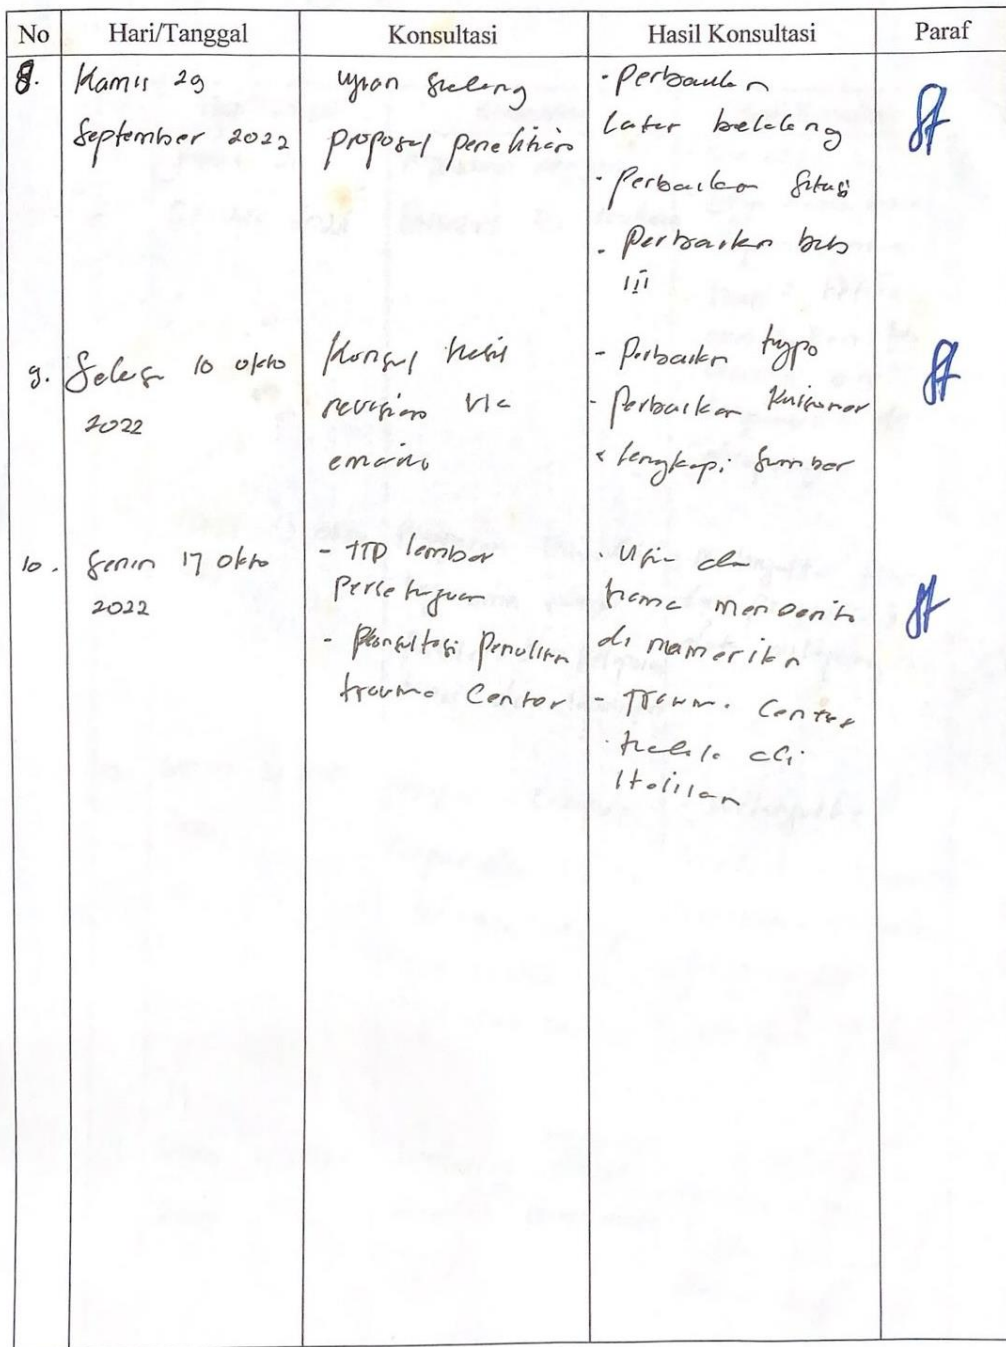 No Hari/Tanggal Konsultasi Hasil Konsultasi Paraf
8. Kamis 29
September 2022
ujian sidang
proposal penelitian
- Perbaikan
Latar belakang
- Perbaikan sitasi
- Perbaikan bab
III
9. Selasa 10 okto
2022
Konsul hasil
revisian via
email
- Perbaikan typo
- Perbaikan Kuisoner
- lengkapi sumber
10. Senin 17 okto
2022
- TTD lembar
Persetujuan
- Konsultasi Penulisan
trauma Center
- Uji
- Traum. Center